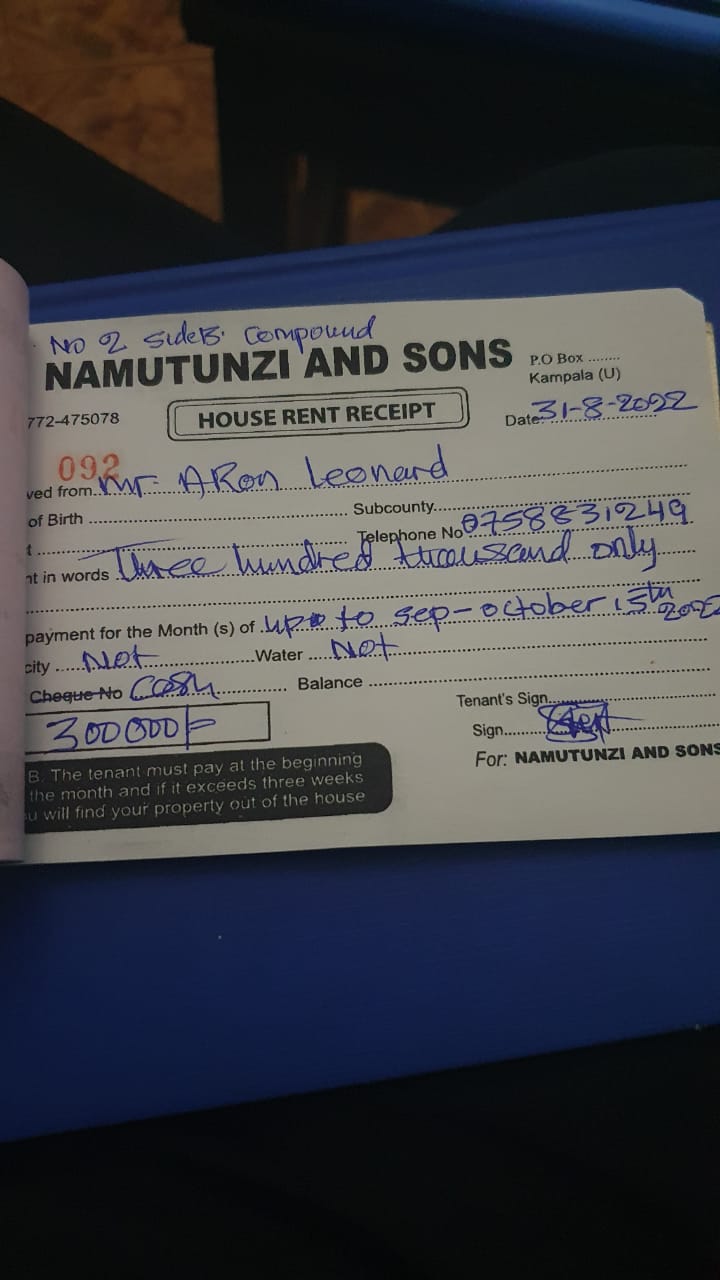 No 2 side B. Compound
NAMUTUNZI AND SONS
P.O Box ........
Kampala (U)
772-475078
HOUSE RENT RECEIPT
Date 31-8-2022
092
ved from Mr. ARon Leonard
of Birth ........ Subcounty........
t ........ Telephone No 0758831249
nt in words Three hundred thousand only
payment for the Month (s) of up to sep-october 15th 2022
city .... Not ........ Water .... Not
Cheque No Cash ........ Balance ........
300000/=
Tenant's Sign........
Sign........
For: NAMUTUNZI AND SONS
B. The tenant must pay at the beginning
the month and if it exceeds three weeks
u will find your property out of the house